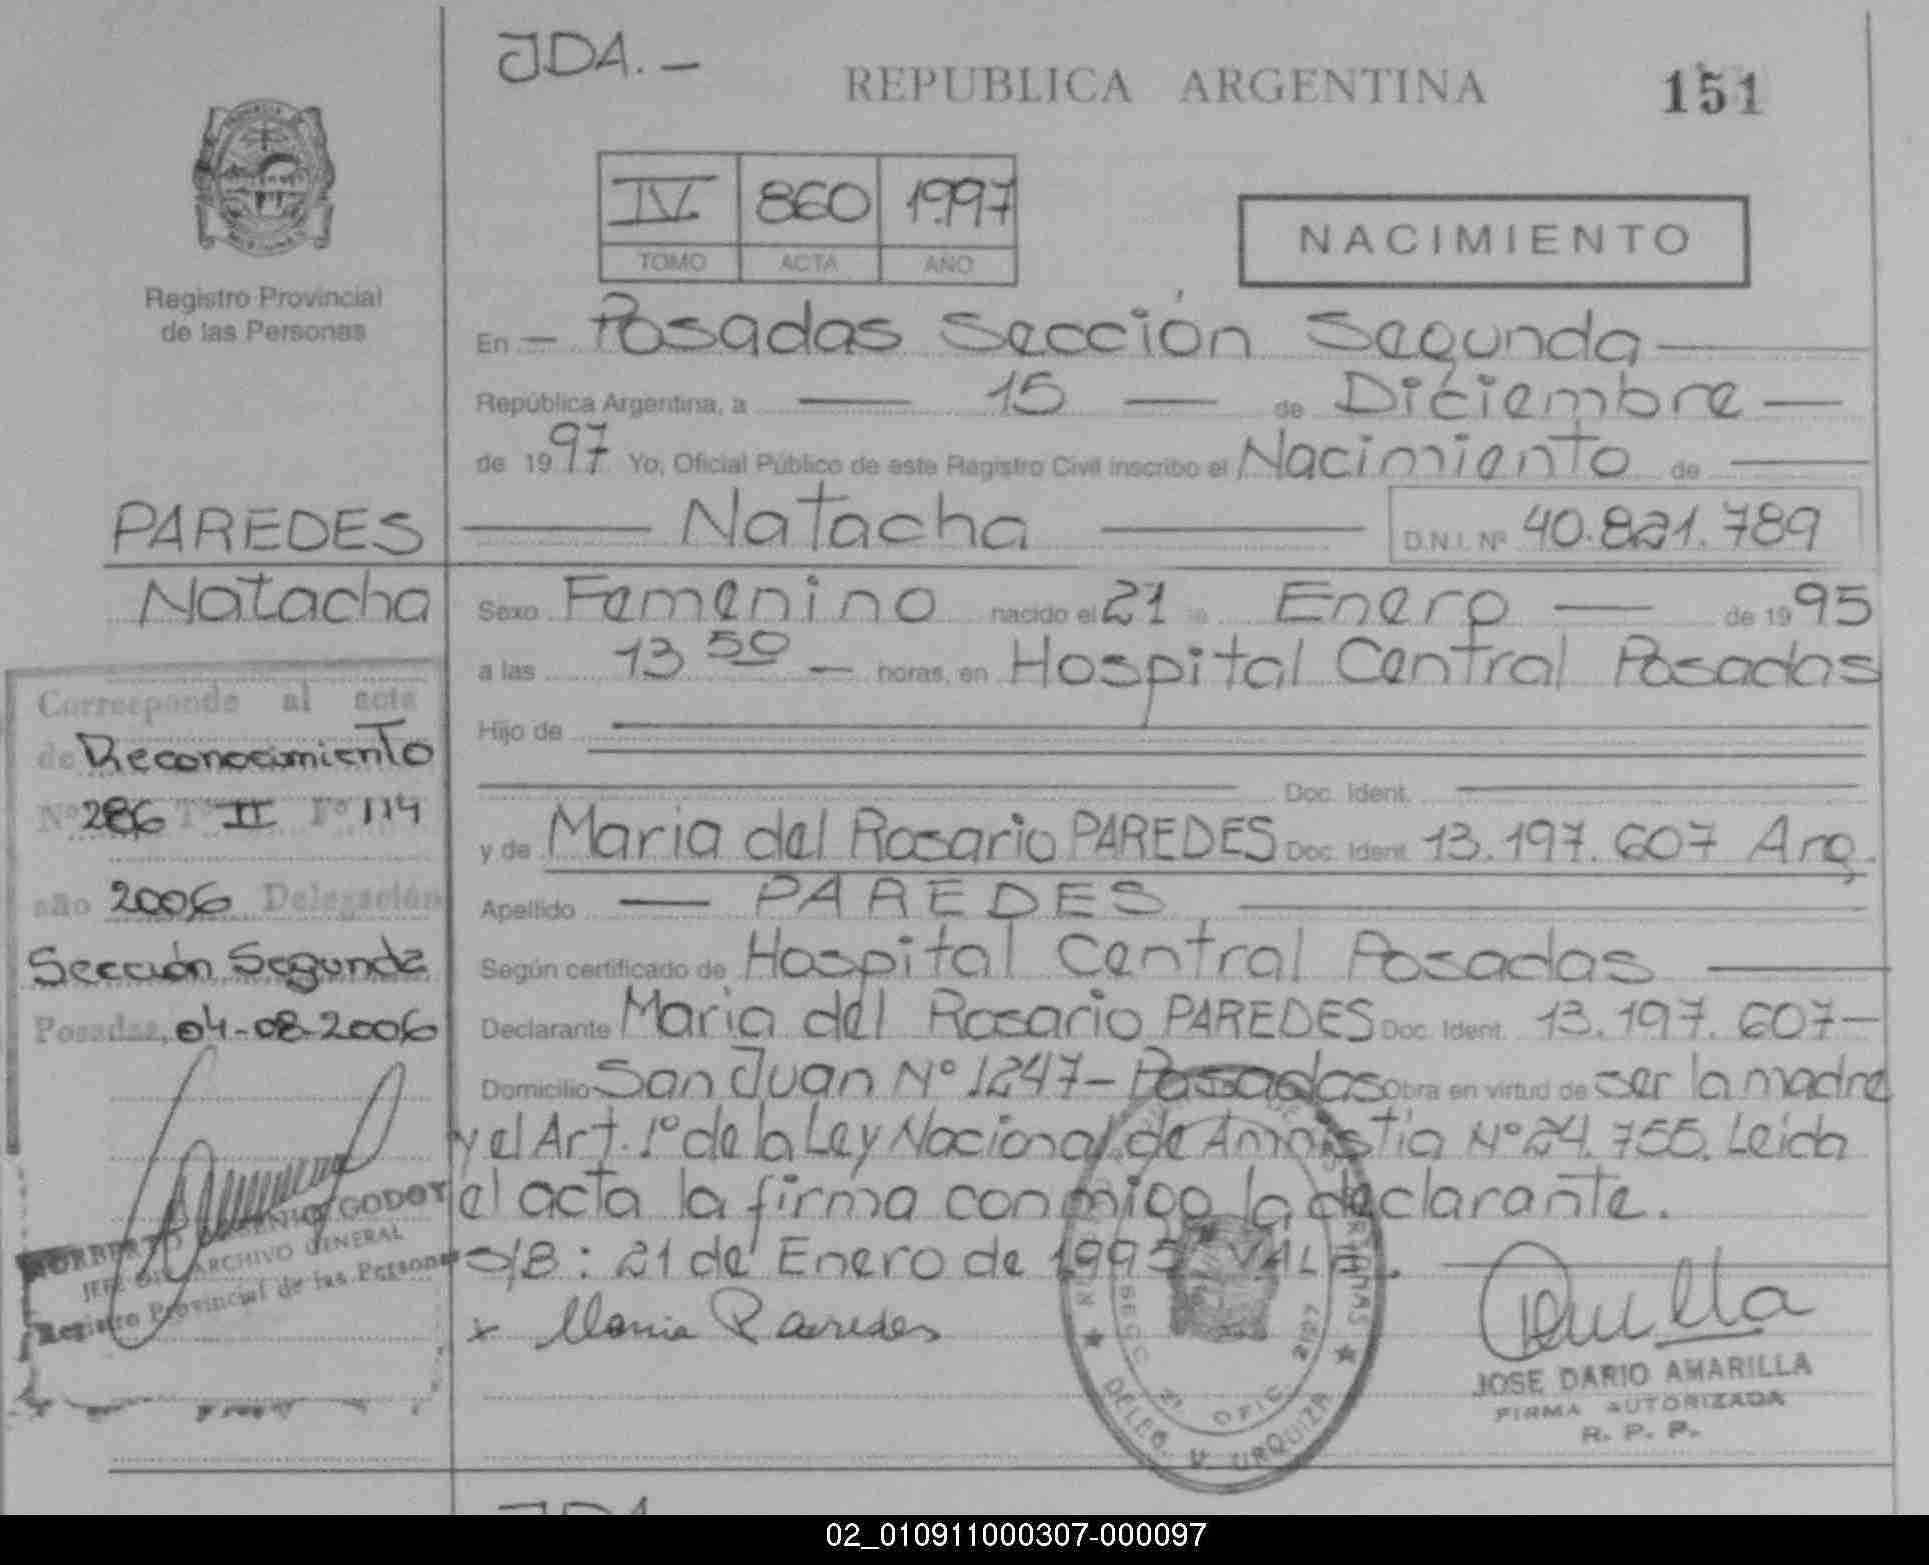 JDA.-
REPUBLICA ARGENTINA
151
IV 860 1997
TOMO ACTA AÑO
NACIMIENTO
Registro Provincial
de las Personas
En - Posadas Sección Segunda
República Argentina, a 15 de Diciembre
de 1997 Yo, Oficial Público de este Registro Civil inscribo el Nacimiento de
PAREDES
Natacha
Natacha D.N.I. Nº 40.821.789
Sexo Femenino nacido el 21 de Enero de 1995
a las 13 50 horas, en Hospital Central Posadas
Hijo de
Doc. Ident.
y de Maria del Rosario PAREDES Doc. Ident. 13.197.607 Arg.
Apellido PAREDES
Según certificado de Hospital Central Posadas
Declarante Maria del Rosario PAREDES Doc. Ident. 13.197.607-
Domicilio San Juan Nº 1247- Posadas Obra en virtud de ser la madre
y el Art. 1º de la Ley Nacional de Amnistia Nº 24.755. Leida
el acta la firma conmigo la declarante.
S/B: 21 de Enero de 1995 VALE.
x Maria Paredes
JOSE DARIO AMARILLA
FIRMA AUTORIZADA
R. P. P.
Corresponde al acta
de Reconocimiento
Nº 286 Tº II Fº 114
año 2006 Delegación
Sección Segunda
Posadas, 04-08-2006
NORBERTO GODOY
JEFE ARCHIVO GENERAL
Registro Provincial de las Personas
SECC 2ª OFIC 2107
DELEG. V. URQUIZA
JDA
02_010911000307-000097